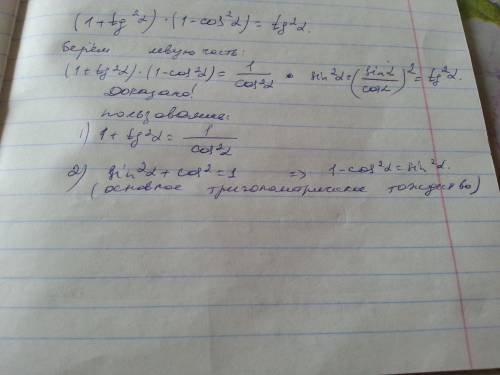 (1+tg²α)·(1-cos²α)=tg²α.
Берём левую часть:
(1+tg²α)·(1-cos²α)=1/cos²α • sin²α=(sinα/cosα)²=tg²α.
Доказано!
пользовались:
1) 1+tg²α=1/cos²α
2) sin²α+cos²=1 => 1-cos²α=sin²α.
(основное тригонометрическое тождество)